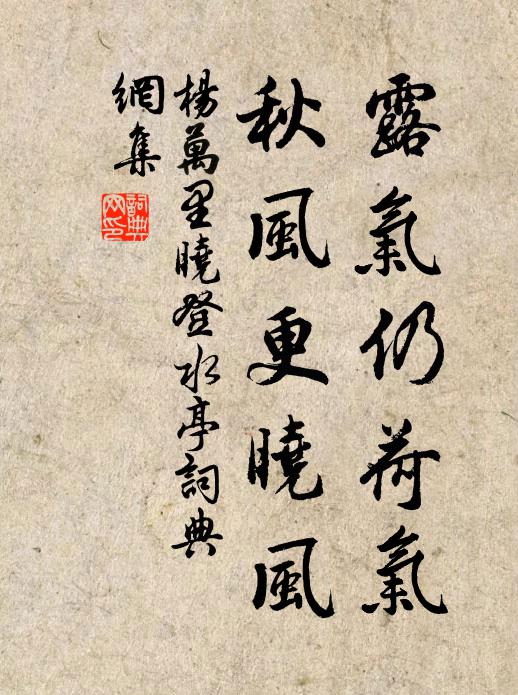 露氣仍荷氣
秋風更曉風
楊萬里曉登水亭詞典
網集
詞典
网印